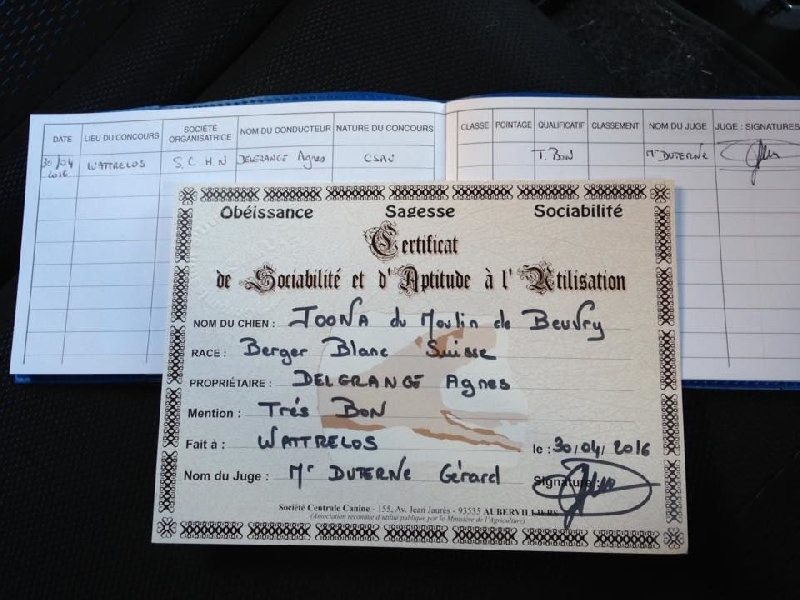 DATE LIEU DU CONCOURS SOCIÉTÉ ORGANISATRICE NOM DU CONDUCTEUR NATURE DU CONCOURS CLASSE POINTAGE QUALIFICATIF CLASSEMENT NOM DU JUGE JUGE : SIGNATURES
30/04 2016 WATTRELOS S.C H N DELGRANGE Agnes CSAU T. BON Mr DUTERNE
Obéissance Sagesse Sociabilité
Certificat
de Sociabilité et d'Aptitude à l'Utilisation
NOM DU CHIEN : JOONA du Moulin de Beuvry
RACE : Berger Blanc Suisse
PROPRIÉTAIRE : DELGRANGE Agnes
Mention : Trés BON
Fait à : WATTRELOS le : 30/04/2016
Nom du Juge : Mr DUTERNE Gérard Signature :
Société Centrale Canine - 155, Av. Jean Jaurès - 93535 AUBERVILLIERS
(Association reconnue d'utilité publique par le Ministère de l'Agriculture)